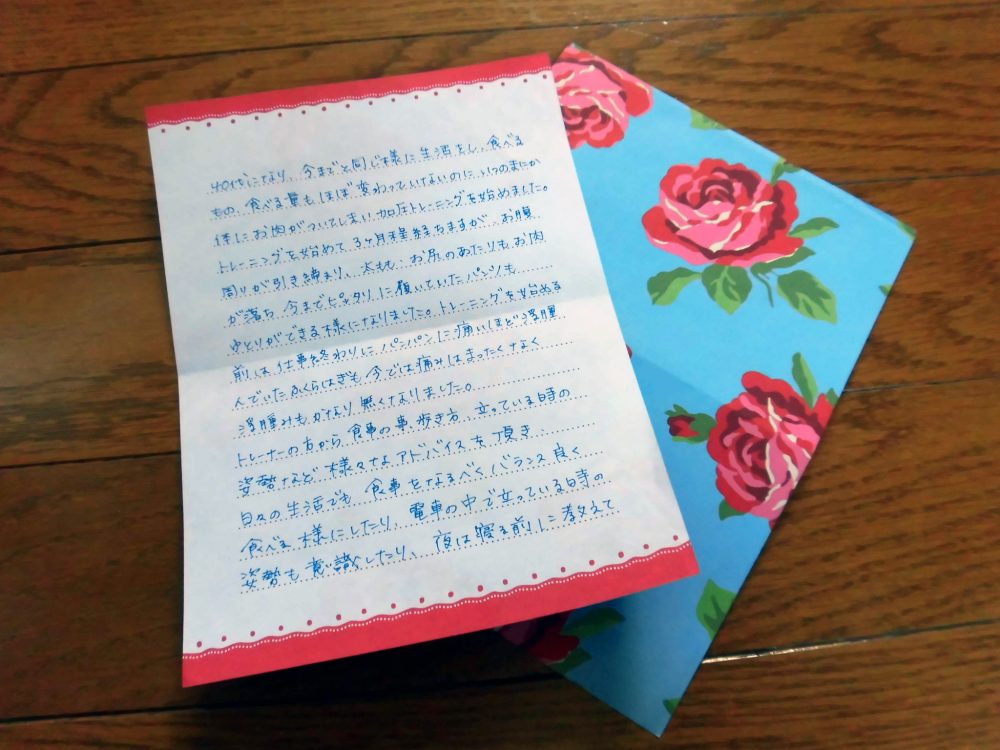 40代になり、今までと同じ様に生活をし、食べる
もの、食べる量も ほぼ 変わっていないのに、いつのまにか
体に お肉がついてしまい 加圧トレーニングを始めました。
トレーニングを始めて 3ヶ月程経ちますが、お腹
周りが引き締まり、太もも・お尻のあたりもお肉
が落ち 今までピッタリに履いていたパンツも
ゆとりができる様になりました。トレーニングを始める
前は 仕事終わりに パンパンに痛いほど浮腫
んでいた ふくらはぎも 今では痛みはまったくなく
浮腫みも かなり 無くなりました。
トレーナーの方から 食事の事、歩き方、立っている時の
姿勢など 様々なアドバイスを頂き
日々の生活でも 食事をなるべく バランス良く
食べる様にしたり、電車の中で立っている時の
姿勢も意識したり、夜は寝る前に教えて